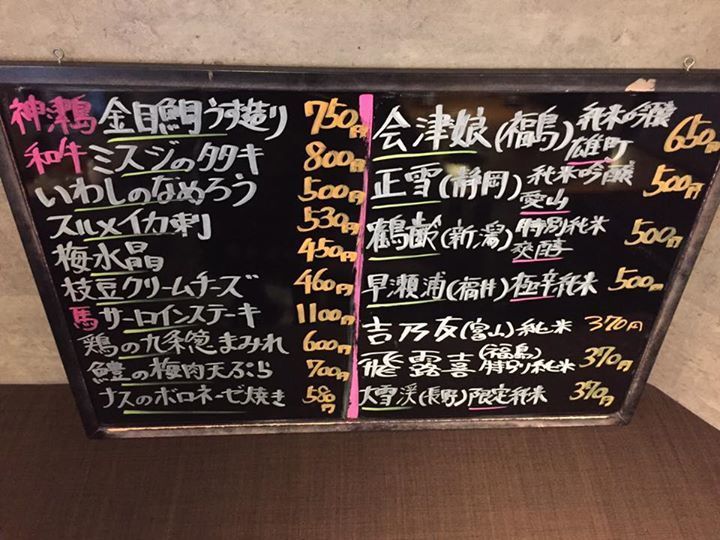 神津島 金目鯛うす造り 750円
和牛 ミスジのタタキ 800円
いわしのなめろう 500円
スルメイカ刺 530円
梅水晶 450円
枝豆クリームチーズ 460円
馬 サーロインステーキ 1100円
鶏の九条葱まみれ 600円
鱧の梅肉天ぷら 700円
ナスのボロネーゼ焼き 580円
会津娘(福島)純米吟醸 雄町 650円
正雪(静岡)純米吟醸 愛山 500円
鶴齢(新潟)特別純米 爽醇 500円
早瀬浦(福井)極辛純米 500円
吉乃友(富山)純米 370円
飛露喜(福島)特別純米 370円
大雪渓(長野)限定純米 370円